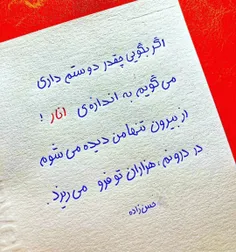 اگر بگویی چقدر دوستم داری
می گویم به اندازه ی انار !
از بیرون تنها من دیده می شوم
در درونم ، هزاران تو فرو می ریزد .
حسن زاده